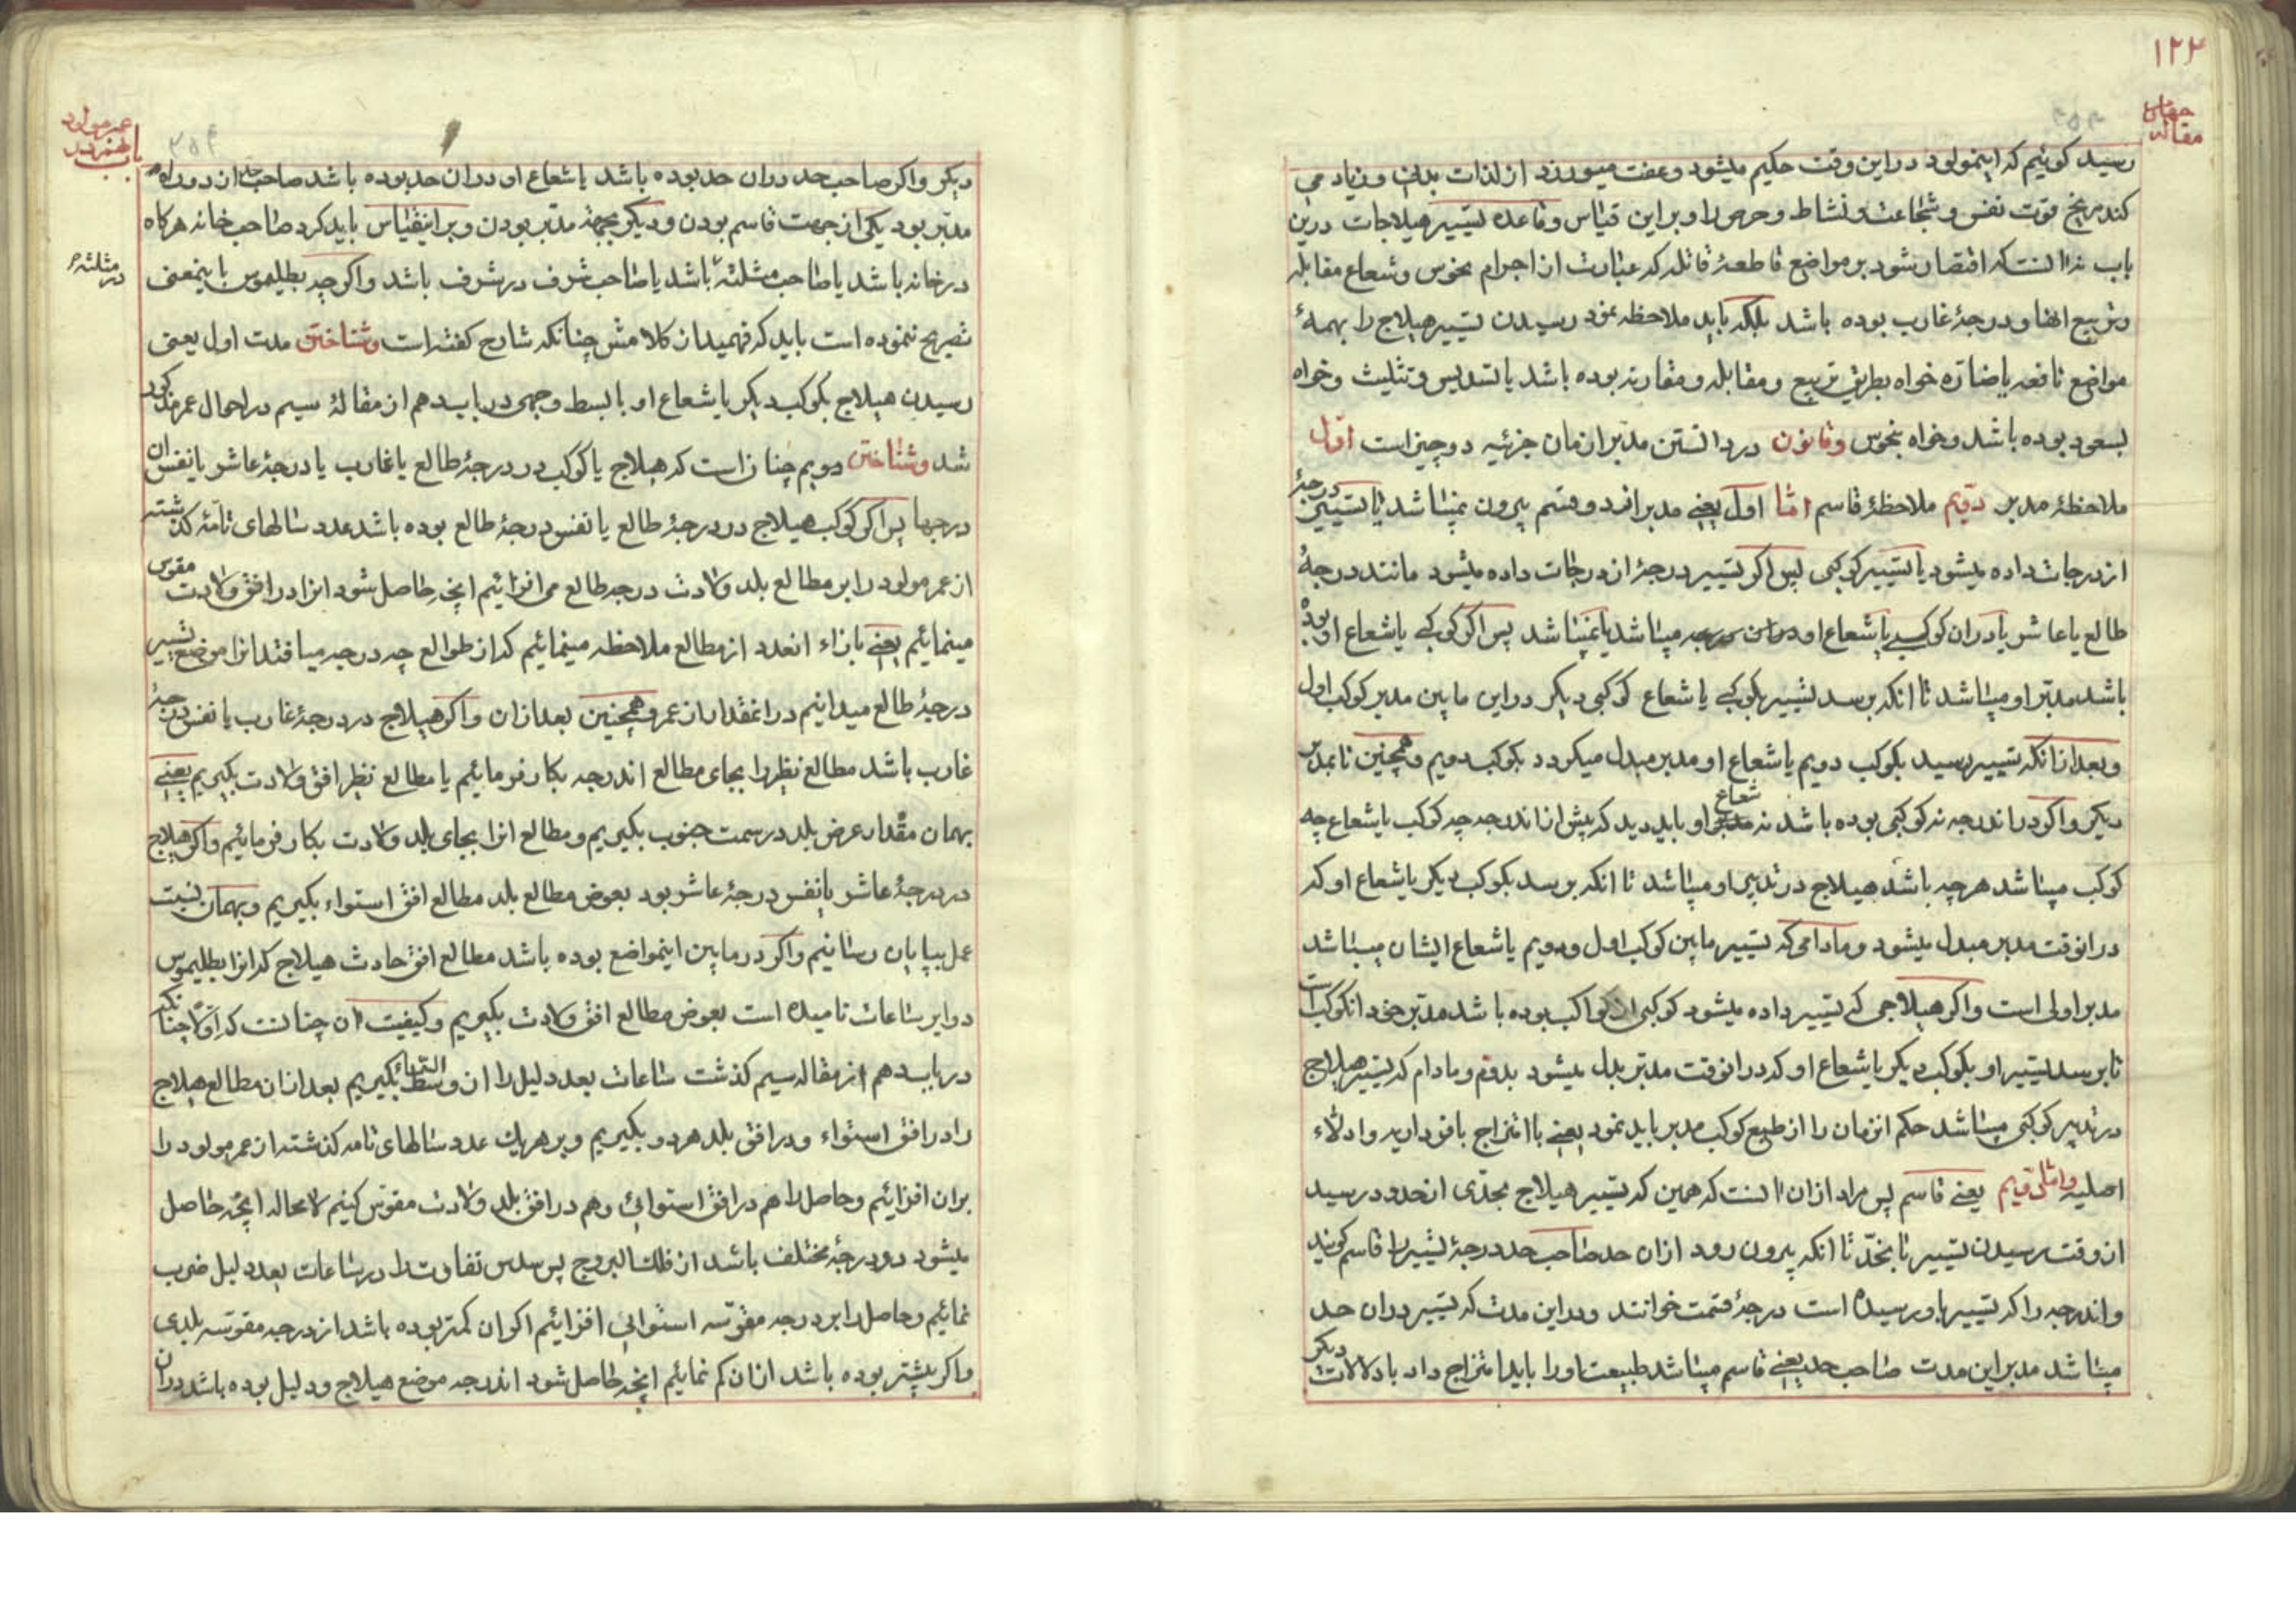 ۱۲۴
چهارم
مقاله
رسید کوئیم که اینمولود دراین وقت حکیم میشود وعفت میورزد از لذات بدنی وزیاد می
کند مریخ قوت نفس و شجاعت و نشاط و حرص را وبراین قیاس وقاعده تسییر هیلاجات درین
باب نه انست که اقتصار شود بر مواضع قاطعهٔ قاتله که عبارت از اجرام نحوس وشعاع مقابله
وتربیع انها و درجهٔ غارب بوده باشد بلکه باید ملاحظه نمود رسیدن تسییر هیلاج را بهمهٔ
مواضع نافعه یا ضاره خواه بطریق تربیع ومقابله ومقارنه بوده باشد یا تسدیس وتثلیث وخواه
بسعود بوده باشد وخواه بنحوس وقانون در دانستن مدبر ازمان جزئیه دو چیز است اول
ملاحظهٔ مدبر دویم ملاحظهٔ قاسم امّا اول یعنے مدبر از دو قسم بیرون نمیباشد یا تسییر درجهٔ
از درجات داده میشود یا تسییر کوکبی پس اکر تسییر درجهٔ از درجات داده میشود مانند درجهٔ
طالع یا عاشر یا دران کوکبے یا شعاع او دراین درجه میباشد یا نمیباشد پس اکر کوکبے یا شعاع او بوده
باشد مدبّر او میباشد تا انکه برسد تسییر بکوکبے یا شعاع کوکبی دیکر دراین مابین مدبر کوکب اول
وبعد از انکه تسییر رسید بکوکب دویم یا شعاع او مدبر مبدل میکردد بکوکب دویم وهمچنین تا بمدبر
دیکر واکر در اندرجه نه کوکبی بوده باشد نه شعاع او باید دید که پیش از اندرجه چه کوکب یا شعاع چه
کوکب میباشد هرچه باشد هیلاج در تدبیر او میباشد تا انکه برسد بکوکب دیکر یا شعاع او که
درانوقت مدبر مبدل میشود ومادامی که تسییر مابین کوکب اول ودویم یا شعاع ایشان میباشد
مدبر اولی است واکر هیلاجی که تسییر داده میشود کوکبی از کواکب بوده باشد مدبّر خود انکوکب است
تا برسد تسییر او بکوکب دیکر یا شعاع او که درانوقت مدبّر بدل میشود بدوم ومادام که تسییر هیلاج
در تدبیر کوکبی میباشد حکم انزمان را از طبع کوکب مدبر باید نمود یعنے با امتزاج بافرداریه وادلاء
اصلیه وامّا دویم یعنے قاسم پس مراد ازان انست که همین که تسییر هیلاج بحدّی از حدود رسید
از وقت رسیدن تسییر تا بحدّ تا انکه بیرون رود ازان حد صاحب حد درجهٔ تسییر را قاسم کویند
واندرجه را که تسییر باو رسیده است درجهٔ قسمت خوانند ودراین مدت که تسییر دران حد
میباشد مدبر این مدت صاحب حد یعنے قاسم میباشد طبیعت او را باید امتزاج داد با دلالات دیکر
عمر مولود
باب هفدهم در
دیکر واکر صاحب حد دران حد بوده باشد یا شعاع او دران حد بوده باشد صاحب حد از دو راه
مدبّر بود یکی از جهت قاسم بودن ودیکر بجهة مدبّر بودن وبراینقیاس باید کرد صاحب خانه هرکاه
درخانه باشد یا صاحب مثلثه باشد یا صاحب شرف در شرف باشد واکرچه بطلیموس باینمعنی
در مثلثه
تصریح ننموده است باید که فهمید از کلامش چنانکه شارح کفته است وشناختن مدت اول یعنی
رسیدن هیلاج بکوکب دیکر یا شعاع او بابسط وجهی درباب دهم از مقالهٔ سیم در احوال عمر مذکور
شد وشناختن دویم چنان است که هیلاج یا کوکب در درجهٔ طالع یا غارب یا درجهٔ عاشر یا نفس ان
درجها پس اکر کوکب هیلاج در درجهٔ طالع یا نفس درجهٔ طالع بوده باشد عدد سالهای تامّهٔ کذشته
از عمر مولود را بر مطالع بلد ولادت درجه طالع می افزائیم انچه حاصل شود انرا درافق ولادت مقوس
مینمائیم یعنے بازاء انعدد از مطالع ملاحظه مینمائیم که از طوالع چه درجه میافتد انرا موضع تسییر
درجهٔ طالع میدانیم درانمقدار از عمر وهمچنین بعد ازان واکر هیلاج در درجهٔ غارب یا نفس درجهٔ
غارب باشد مطالع نظیر را بجای مطالع اندرجه بکار فرمائیم یا مطالع نظیر افق ولادت بکیریم یعنے
بهمان مقدار عرض بلد در سمت جنوب بکیریم ومطالع انرا بجای بلد ولادت بکار فرمائیم واکر هیلاج
در درجهٔ عاشر یا نفس درجهٔ عاشر بود بعوض مطالع بلد مطالع افق استواء بکیریم وبهمان نسبت
عمل بپایان رسانیم واکر در مابین اینمواضع بوده باشد مطالع افق حادث هیلاج که انرا بطلیموس
دوایر ساعات نامیده است بعوض مطالع افق ولادت بکیریم وکیفیت ان چنانست که اوّلا چنانکه
در باب دهم از مقاله سیم کذشت ساعات بعد دلیل را از وسط السماء بکیریم بعد ازان مطالع هیلاج
را در افق استواء ودر افق بلد هر دو بکیریم وبر هریك عدد سالهای تامه کذشته از عمر مولود را
بران افزائیم وحاصل را هم درافق استوائی وهم درافق بلد ولادت مقوّس کنیم لامحاله انچه حاصل
میشود دو درجهٔ مختلف باشد از فلك البروج پس سدس تفاوت را در ساعات بعد دلیل ضرب
نمائیم وحاصل را بر درجه مقوّسه استوائی افزائیم اکر ان کمتر بوده باشد از درجه مقوّسه بلدی
واکر بیشتر بوده باشد ازان کم نمائیم انچه حاصل شود اندرجه موضع هیلاج ودلیل بوده باشد دران